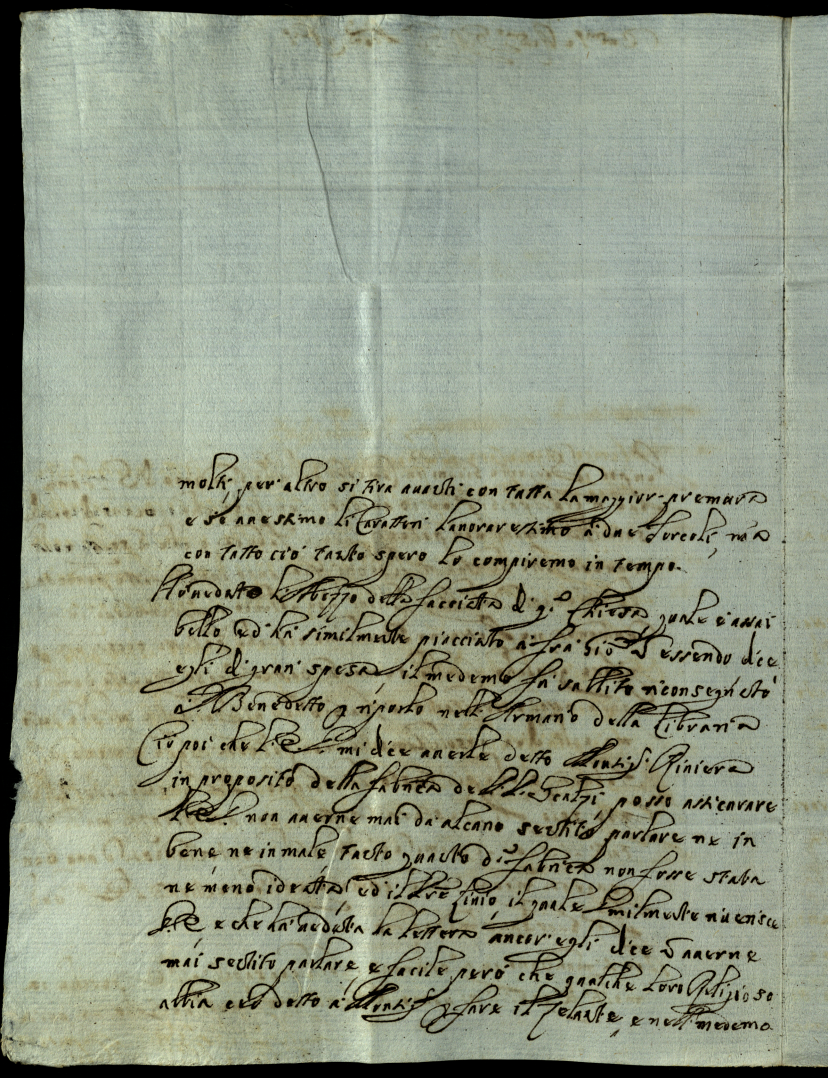 molti, per altro si tira avanti con tutta la maggior premura
e se avessimo li Caratteri lavoraressimo à due Torcoli, mà
con tutto ciò tanto spero lo compiremo in tempo.
Hò veduto della facciata di q.ª Chiesa, quale è assai
bello ed hà similmente piacciuto à frà Gio essendo dice
egli di gran spesa, il medemo fù subbito riconsegnato
a P. Benedetto p riporlo nell'Armario della Libraria
Ciò poi che mi dice averle detto Monsig.r Riniera
in proposito della fabrica de PP. Scalzi, posso assicurare
non averne mai da alcuno sentito parlare ne in
bene ne in male, tanto quanto d.ª fabrica non fosse stata
ne meno ideata, ed il Pre Livio il quale similmente riverisce
e che hà veduta la lettera ancor'egli dice averne
mai sentito parlare, e facile però che qualche loro Religioso
abbia ciò detto à Monsig.r p fare il zelante, e nell'medemo